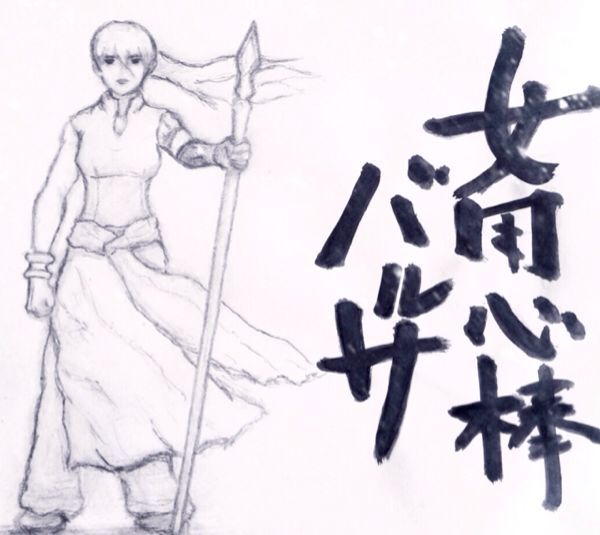 女用心棒
バルサ